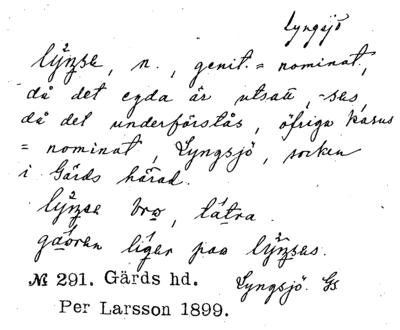 Lyngsjö
lÿnse, n., genit. = nominat.,
då det egda är utsatt, -ses,
då det underförstås, öfriga kasus
= nominat, Lyngsjö, socken
i Gärds härad.
lÿnse bro, låtra.
gåoren liger paa lÿnses.
№ 291. Gärds hd. Lyngsjö. Gs
Per Larsson 1899.